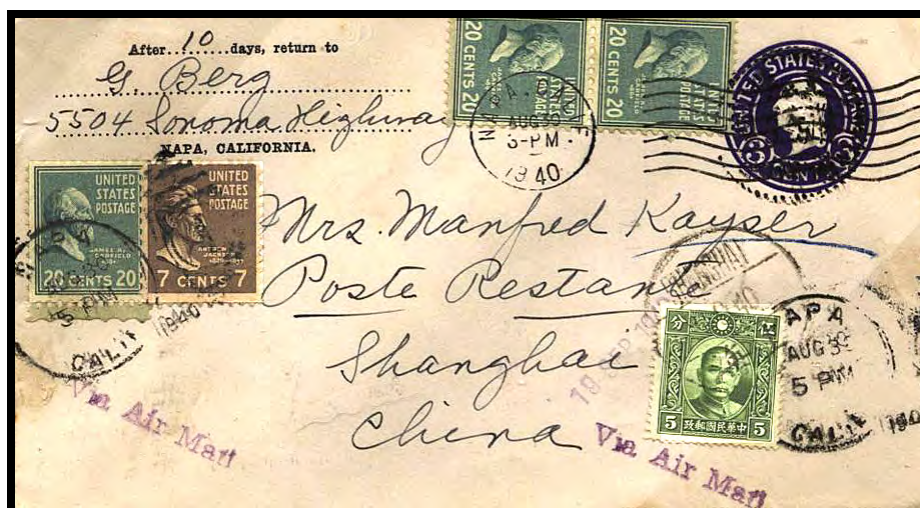 After 10 days, return to
G. Berg
5504 Sonoma Highway
NAPA, CALIFORNIA.
20 CENTS 20
UNITED STATES POSTAGE
20 CENTS 20
UNITED STATES POSTAGE
AUG 3
3-PM
1940
UNITED STATES POSTAGE
3
UNITED STATES POSTAGE
20 CENTS 20
UNITED STATES POSTAGE
ANDREW JACKSON
7 CENTS 7
5 PM
CALIF
1940
Mrs. Manfred Kayser
Poste Restante
Shanghai
China
SHANGHAI
分 伍
5 中華民國郵政 5
NAPA
AUG 3
5 PM
CALIF
1940
Via Air Mail
Via Air Mail